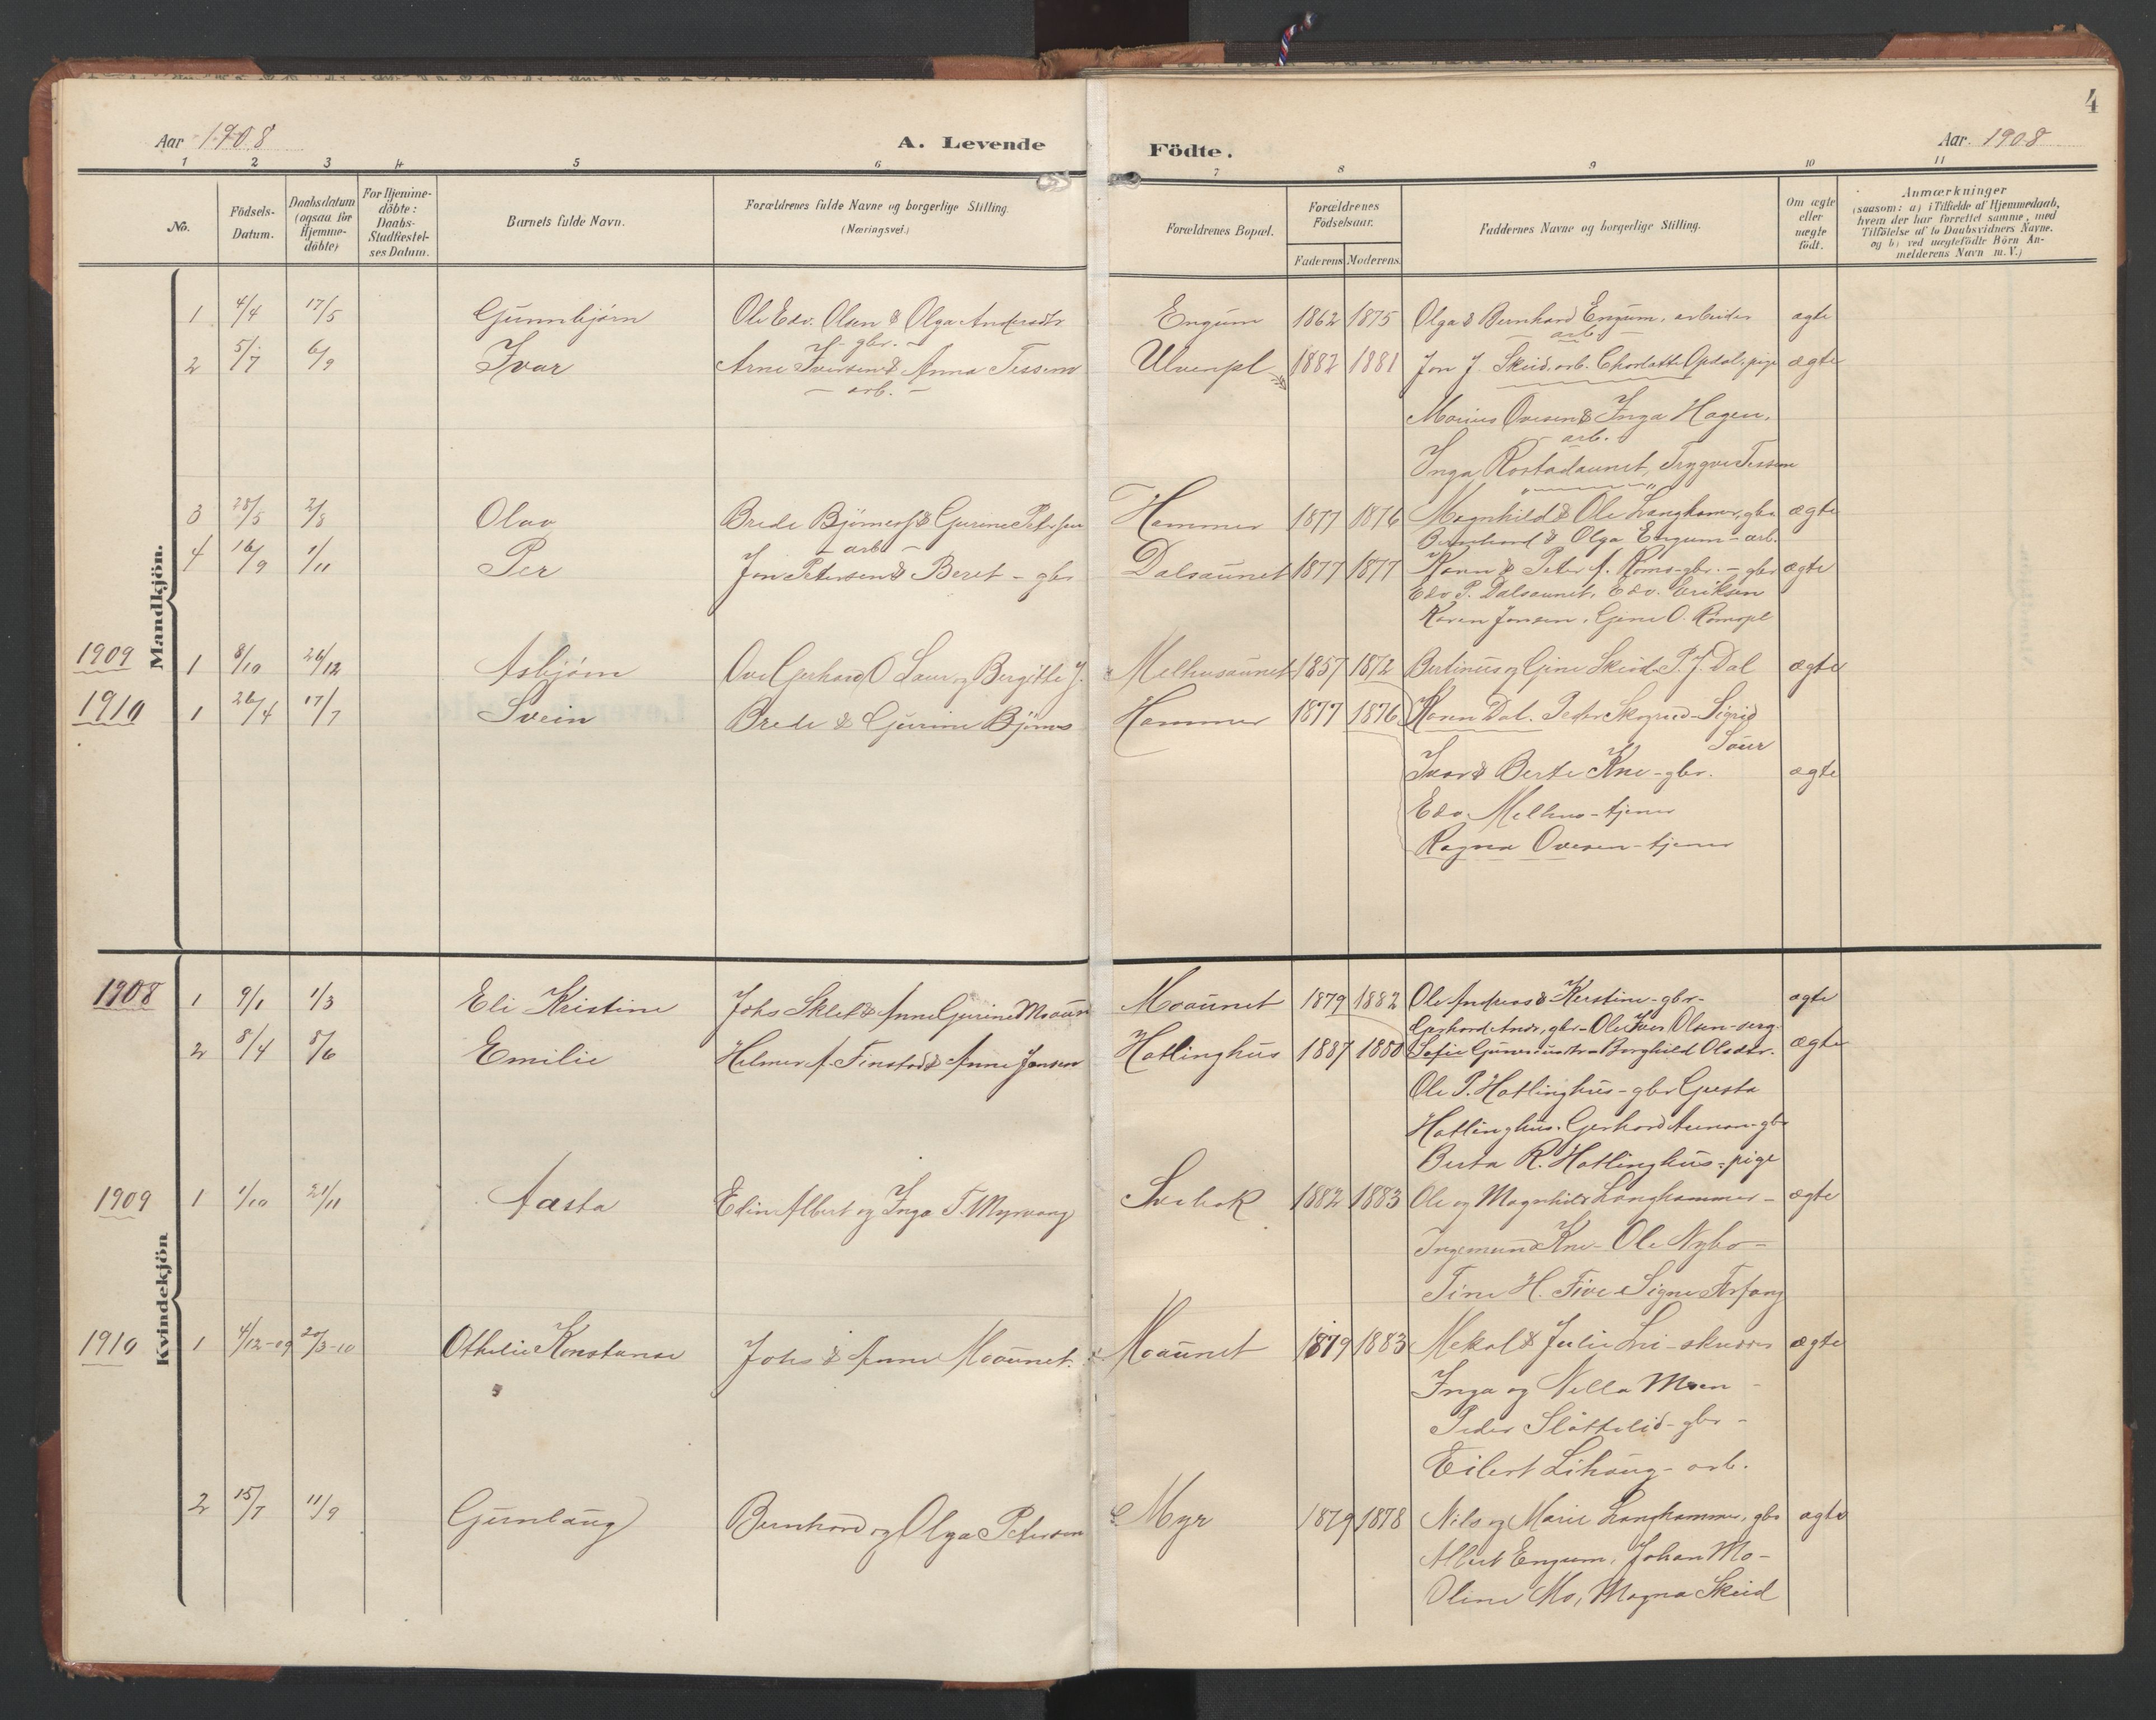 4
Aar 1908
A. Levende
Födte.
Aar. 1908
1 2 3 4 5 6 7 8 9 10 11
No.
Födsels-
Datum.
Daabsdatum
(ogsaa for
Hjemme-
döbte)
For Hjemme-
döbte:
Daabs-
Stadfæstel-
ses Datum.
Barnets fulde Navn.
Forældrenes fulde Navne og borgerlige Stilling.
(Næringsvei.)
Forældrenes Bopæl.
Forældrenes
Födselsaar.
Faderens Moderens.
Faddernes Navne og borgerlige Stilling.
Om ægte
eller
uægte
födt.
Anmærkninger
(saasom: a) i Tilfælde af Hjemmedaab,
hvem der har forrettet samme, med
Tilföielse af to Daabsvidners Navne.
og b) ved uægtefödte Börn An-
melderens Navn m. V.)
Mandkjön.
1 4/4 17/5 Gunnbjörn Ole Edv. Olsen & Olga Andersdtr Engum 1862 1875 Olga & Bernhard Engum, arbeider ægte
- gbr. -
arb.
2 5/7 6/9 Ivar Arne Iversen & Anna Tessem Ulvenpl 1882 1881 Jon J. Skeid, arb. Charlotte Opdal, pige ægte
- arb. -
Marius Ovesen & Inga Hagen.
arb.
Inga Rostadaunet, Trygve Tessem
3 28/5 2/8 Olav Brede Björnes & Gurine Petersen Hammer 1877 1876 Magnhild & Ole Langhamer, gbr ægte
- arb -
Bernhard & Olga Engum - arb.
4 16/9 1/11 Per Jon Petersen & Beret - gbr Dalsaunet 1877 1877 Karen & Peter A. Roms-gbr. - gbr ægte
Edv P. Dalsaunet, Edv. Eriksen
Karen Jonsen, Gine O. Romspl
1909 1 8/10 26/12 Asbjörn Ove Gerhard O Saur og Bergitte J. Melhusaunet 1857 1872 Bertinus og Gine Skeid P. J. Dal ægte
1910 1 26/4 17/7 Svein Brede & Gurine Björnes Hammer 1877 1876 Karen Dal. Peder Skogrud - Sigrid
Saur
Ivar & Berte Kne - gbr. ægte
Edv. Melhus - tjener
Ragna Ovesen - tjener
Kvindekjön
1908 1 9/1 1/3 Eli Kristine Johs Sklet & Anne Gurine Moaun Moaunet 1879 1882 Ole Andreas & Kerstine - gbr - ægte
Gerhard Andr, gbr - Ole Iver Olsen - serg.
2 8/4 8/6 Emilie Helmer A. Finstad & Anne Jensen Hatlinghus 1887 1880 Sofie Guneriusdtr - Borghild Olsdtr. ægte
Ole P. Hatlinghus - gbr Gusta
Hatlinghus. Gerhard Aunan - gbr
Berta R. Hatlinghus - pige
1909 1 1/10 21/11 Aasta Edin Albert og Inga T. Myrvang Svebak 1882 1883 Ole og Magnhild Langhammer - ægte
Ingemund Kne - Ole Nybo -
Tine H. Five Signe Forfang
1910 1 4/12-09 20/3-10 Othelie Konstanse Johs & Anne Moaunet. Moaunet 1879 1883 Mekal & Julie Lni - ægte
Inga og Nella Moen -
Peder Slåttelid - gbr -
Eilert Lihaug - arb.
2 15/7 11/9 Gunlaug Bernhard og Olga Petersen Myr 1879 1878 Nils og Marie Langhammer, gbr ægte
Albert Engum, Johan Mo -
Oline Mo, Magna Skeid